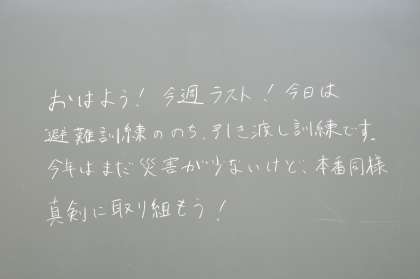 おはよう！今週ラスト！今日は
避難訓練ののち、引き渡し訓練です。
今年はまだ災害が少ないけど、本番同様
真剣に取り組もう！